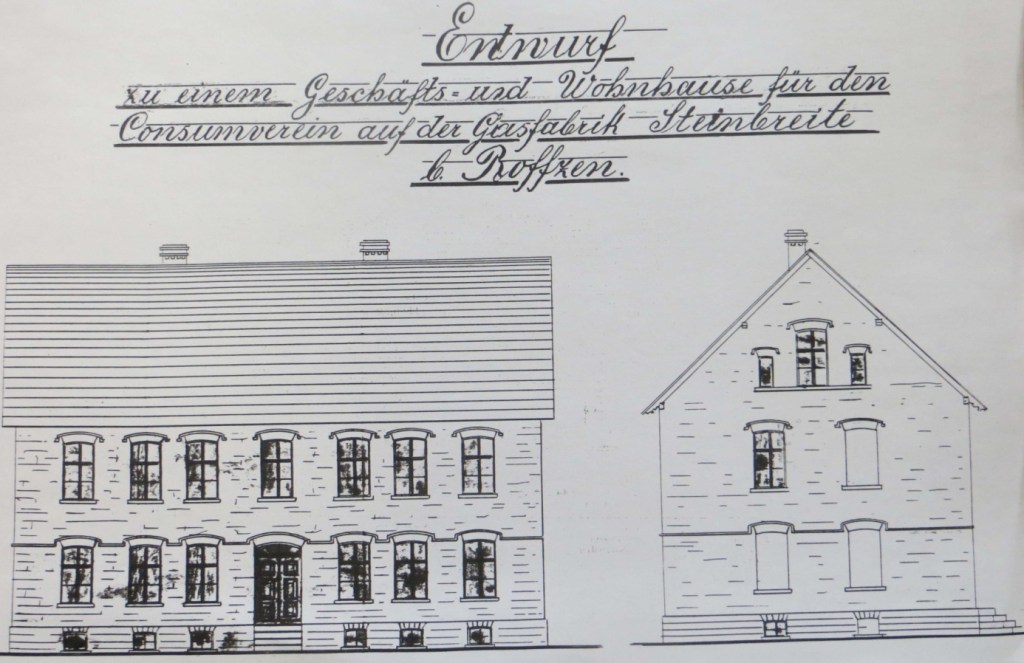 Entwurf
zu einem Geschäfts= und Wohnhause für den
Consumverein auf der Gasfabrik Steinbreite
b. Roffzen.